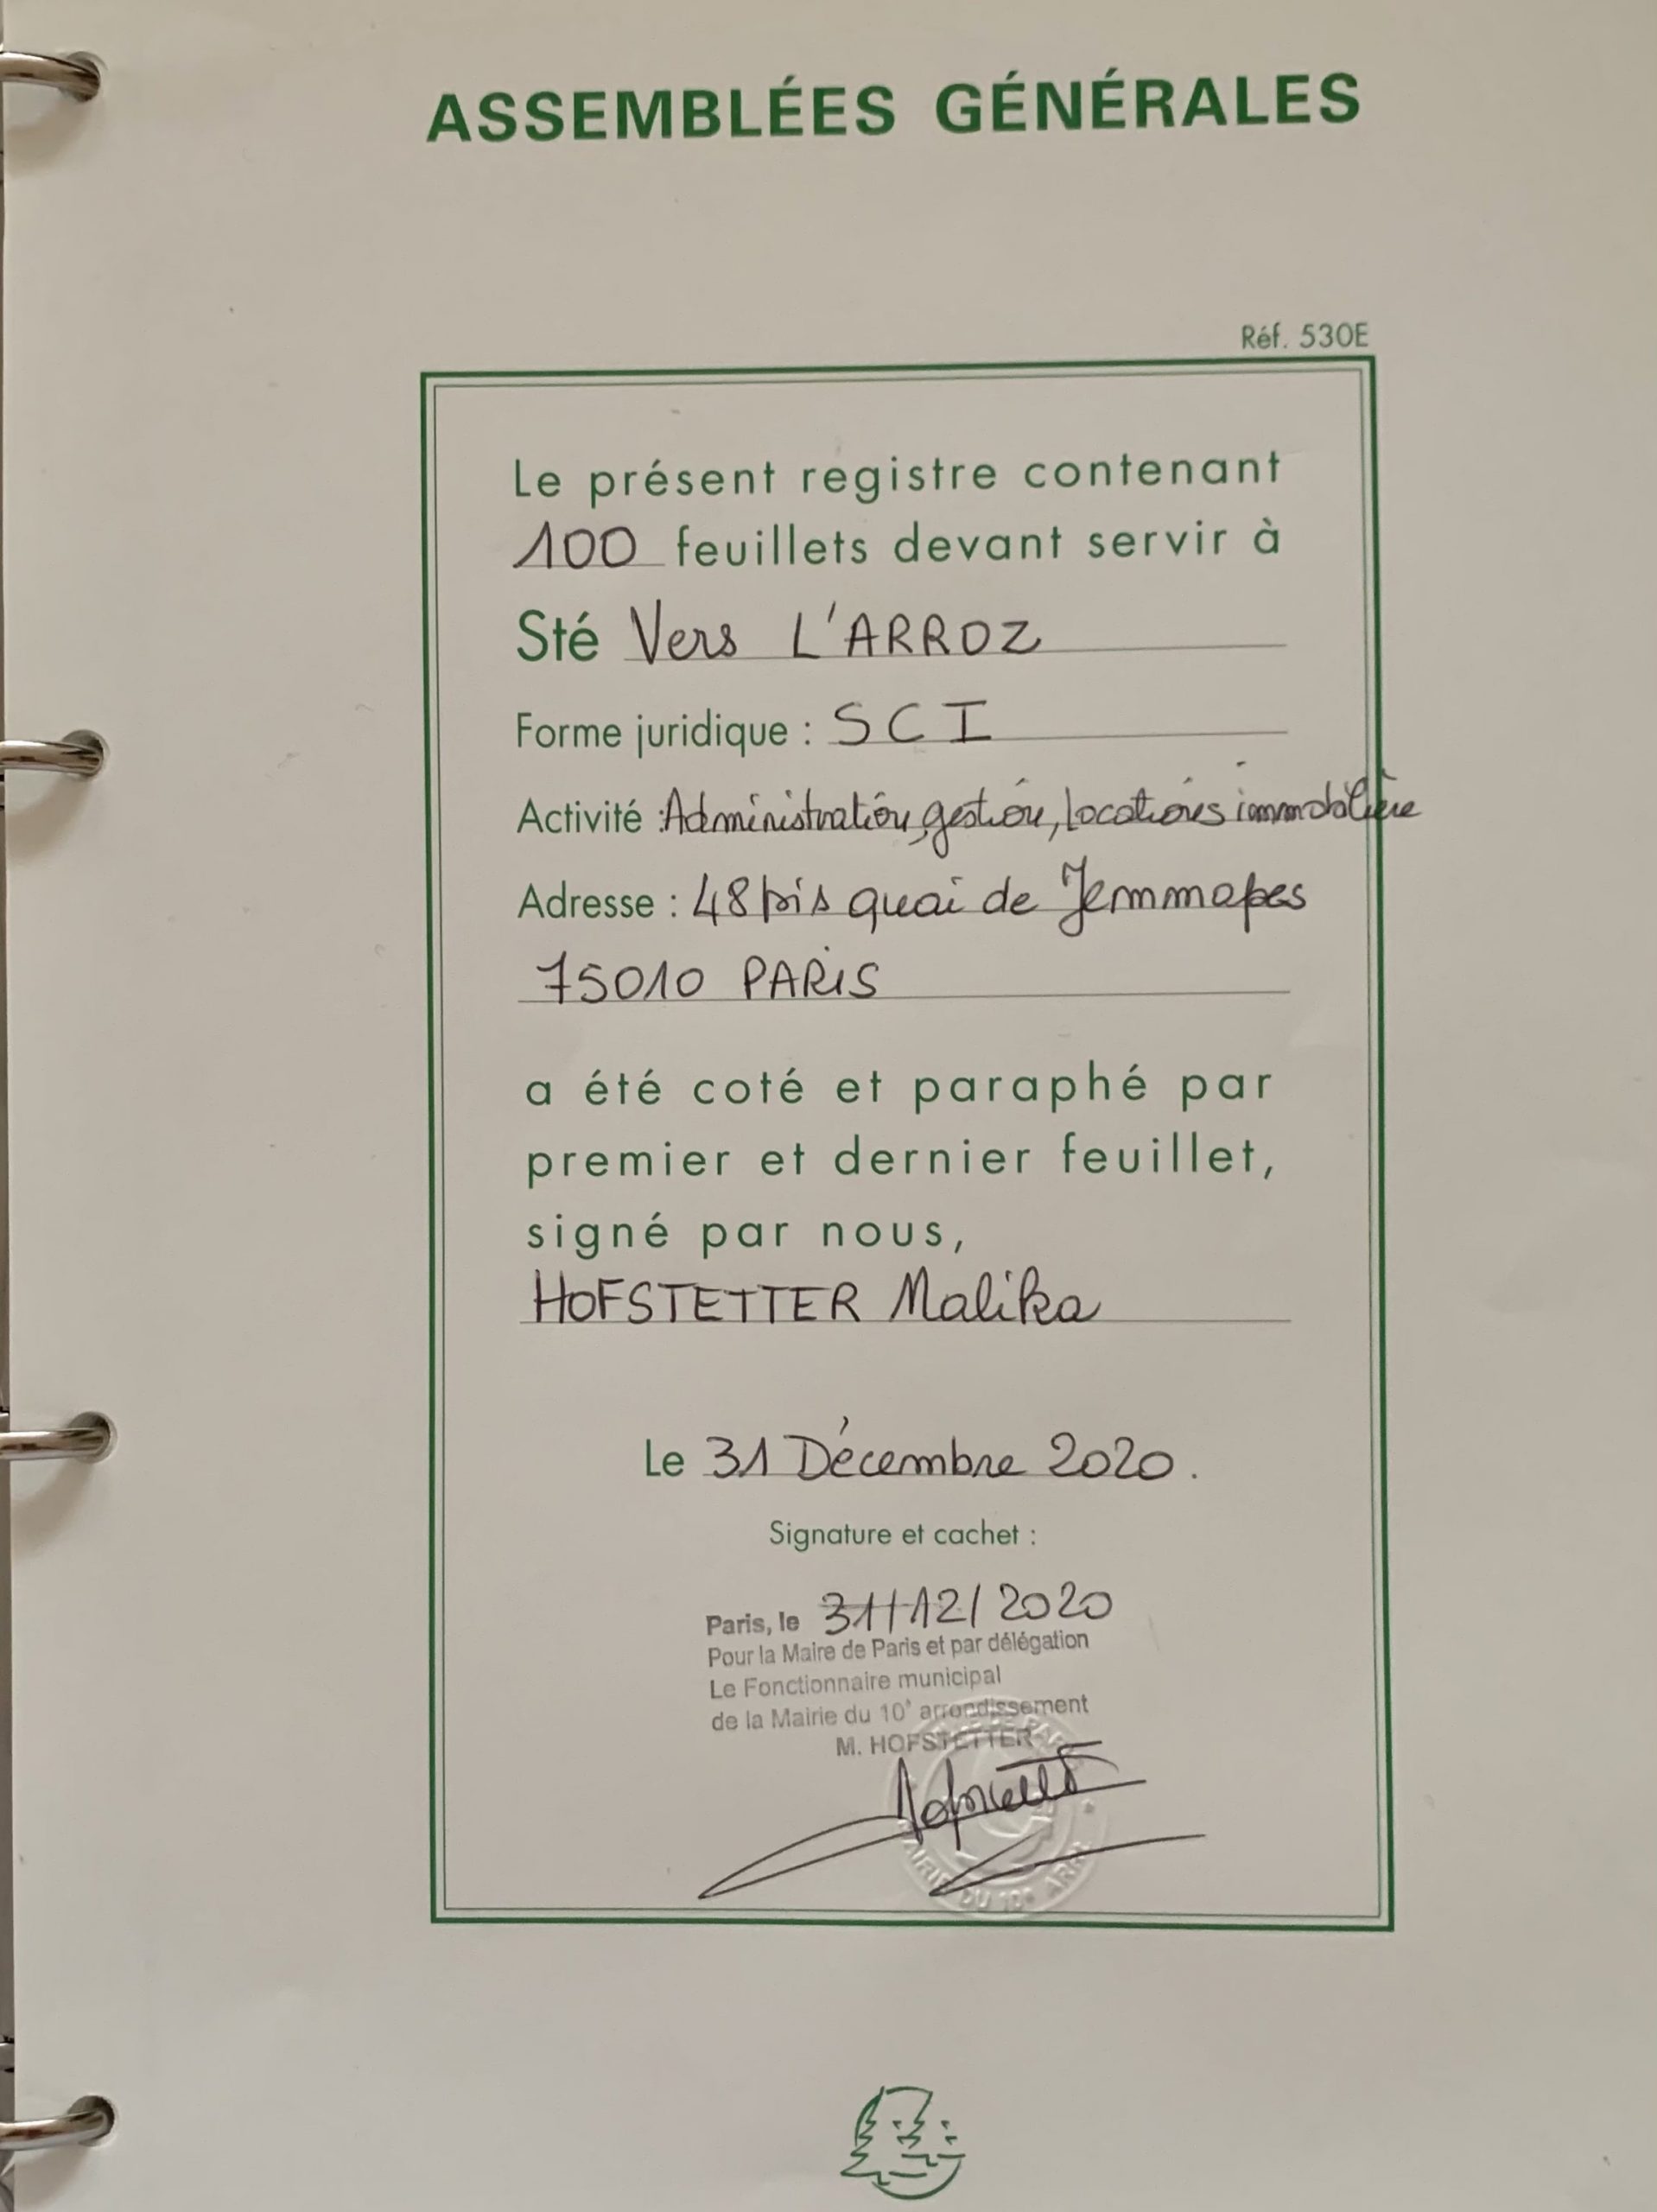 ASSEMBLÉES GÉNÉRALES
Réf. 530E
Le présent registre contenant
100 feuillets devant servir à
Sté Vers L'ARROZ
Forme juridique : SCI
Activité : Administration, gestion, locations immobilière
Adresse : 48 bis quai de Jemmapes
75010 PARIS
a été coté et paraphé par
premier et dernier feuillet,
signé par nous,
HOFSTETTER Malika
Le 31 Décembre 2020.
Signature et cachet :
Paris, le 31/12/2020
Pour la Maire de Paris et par délégation
Le Fonctionnaire municipal
de la Mairie du 10e arrondissement
M. HOFSTETTER
MAIRIE DU 10e ARR